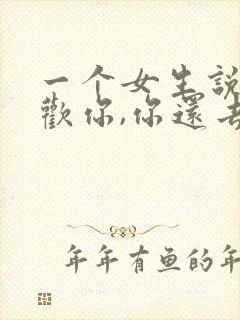 一个女生說
歡你,你還去
年年有鱼的年